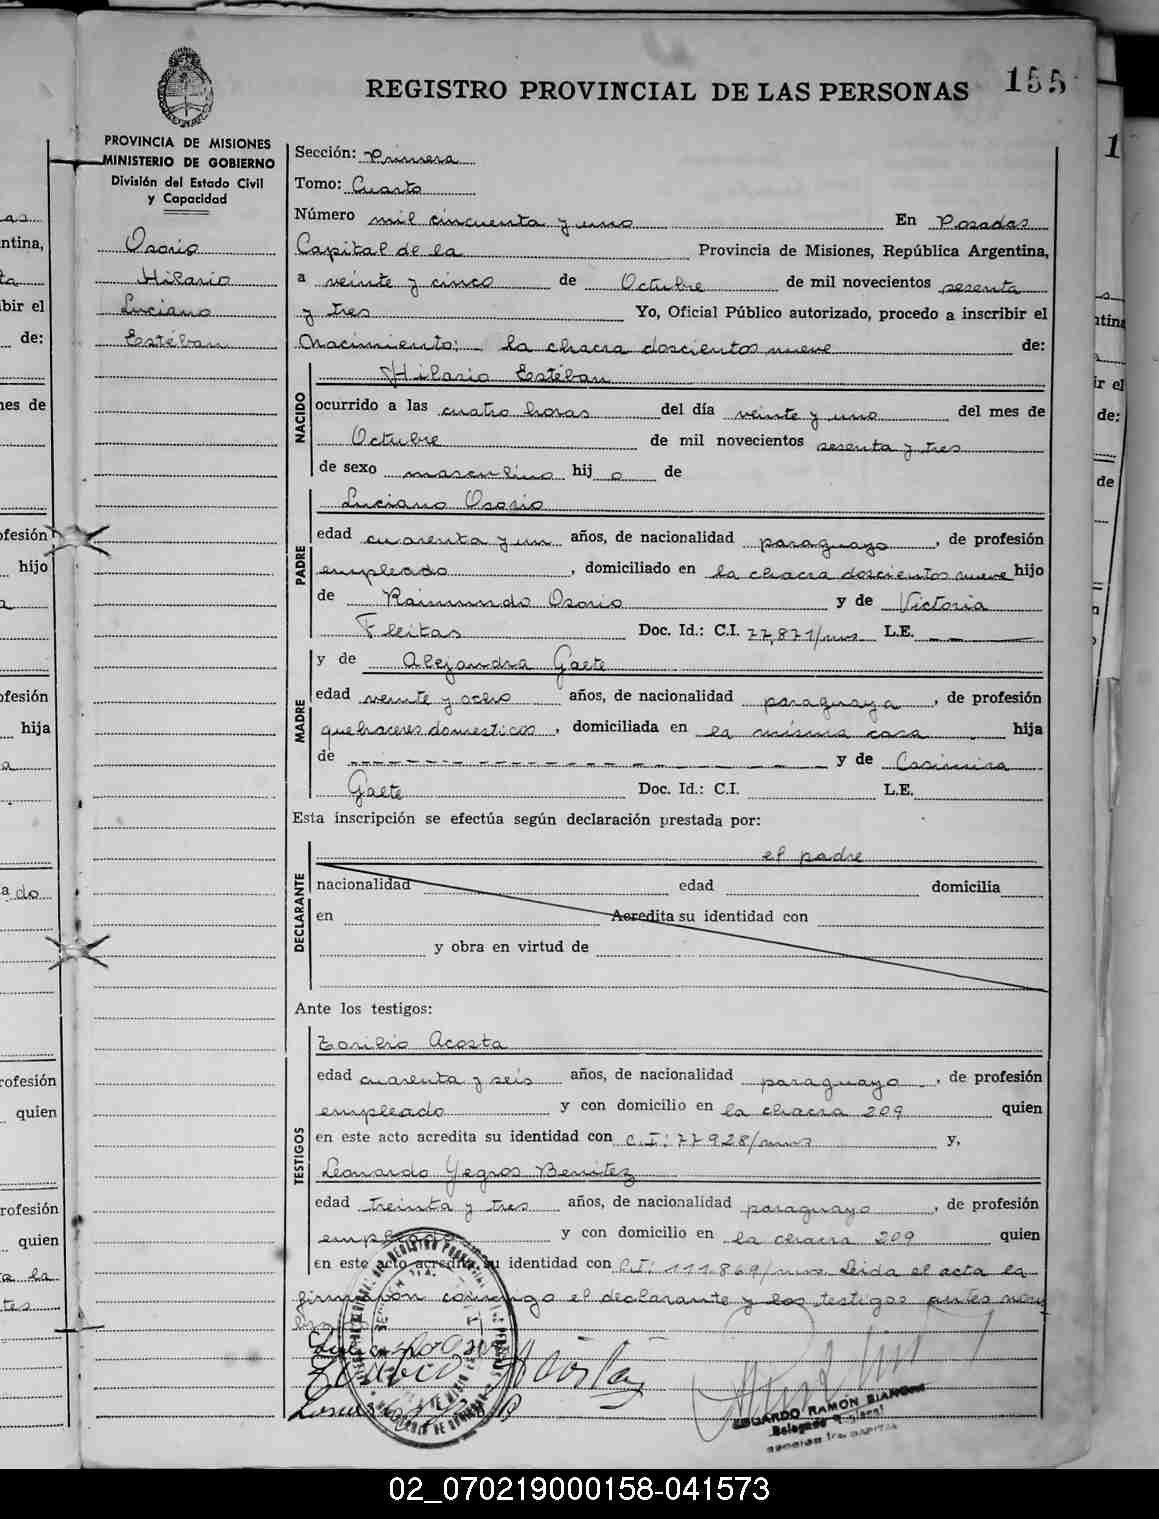 155
REGISTRO PROVINCIAL DE LAS PERSONAS
PROVINCIA DE MISIONES
MINISTERIO DE GOBIERNO
División del Estado Civil
y Capacidad
Osorio
Hilario
Luciano
Estéban
Sección: Primera
Tomo: Cuarto
Número mil cincuenta y uno En Posadas
Capital de la Provincia de Misiones, República Argentina,
a veinte y cinco de Octubre de mil novecientos sesenta
y tres Yo, Oficial Público autorizado, procedo a inscribir el
Nacimiento: - la chacra doscientos nueve de:
NACIDO
Hilario Estéban
ocurrido a las cuatro horas del día veinte y uno del mes de
Octubre de mil novecientos sesenta y tres
de sexo masculino hijo de
PADRE
Luciano Osorio
edad cuarenta y un años, de nacionalidad paraguayo, de profesión
empleado, domiciliado en la chacra doscientos nueve hijo
de Raimundo Osorio y de Victoria
Fleitas Doc. Id.: C.I. 77,871/mns L.E. - -
MADRE
y de Alejandra Gaete
edad veinte y ocho años, de nacionalidad paraguaya, de profesión
quehaceres domesticos, domiciliada en la misma casa hija
de - - - - - - - - - - y de Casimira
Gaete Doc. Id.: C.I. L.E.
Esta inscripción se efectúa según declaración prestada por:
DECLARANTE
el padre
nacionalidad edad domicilia
en Acredita su identidad con
y obra en virtud de
Ante los testigos:
TESTIGOS
Toribio Acosta
edad cuarenta y seis años, de nacionalidad paraguayo, de profesión
empleado y con domicilio en la chacra 209 quien
en este acto acredita su identidad con C.I: 77928/mns y,
Leonardo Yegros Benitez
edad treinta y tres años, de nacionalidad paraguayo, de profesión
empleado y con domicilio en la chacra 209 quien
en este acto acredita su identidad con C.I: 111.869/mns. Leida el acta la
firmaron conmigo el declarante y los testigos antes nom
EDUARDO RAMÓN BIANCHI
02_070219000158-041573